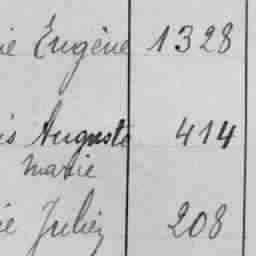 ie Eugène 1328
is Auguste 414
Marie
ie Julien 208